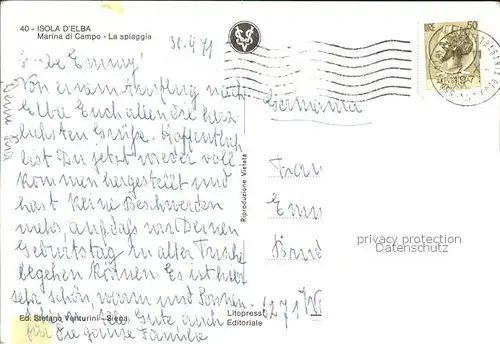 40 - ISOLA D'ELBA
Marina di Campo - La spiaggia
30.4.71
LIRE 50
Liebe Emmy!
Von einem Ausflug nach
Elba Euch allen die herz
lichsten Grüsse. Hoffentlich
bist Du jetzt wieder voll
kommen hergestellt und
hast keine Beschwerden
mehr, auf daß wir Deinen
Geburtstag in alter Frische
begehen können. Es ist hier
sehr schön, warm und Sonnen
Alles Gute auch
für die ganze Familie
Germania
Frau
Emm
Brüd
6271 W
Riproduzione Vietata
privacy protection
Datenschutz
Ed. Stefano Venturini - Siena
Litopress
Editoriale